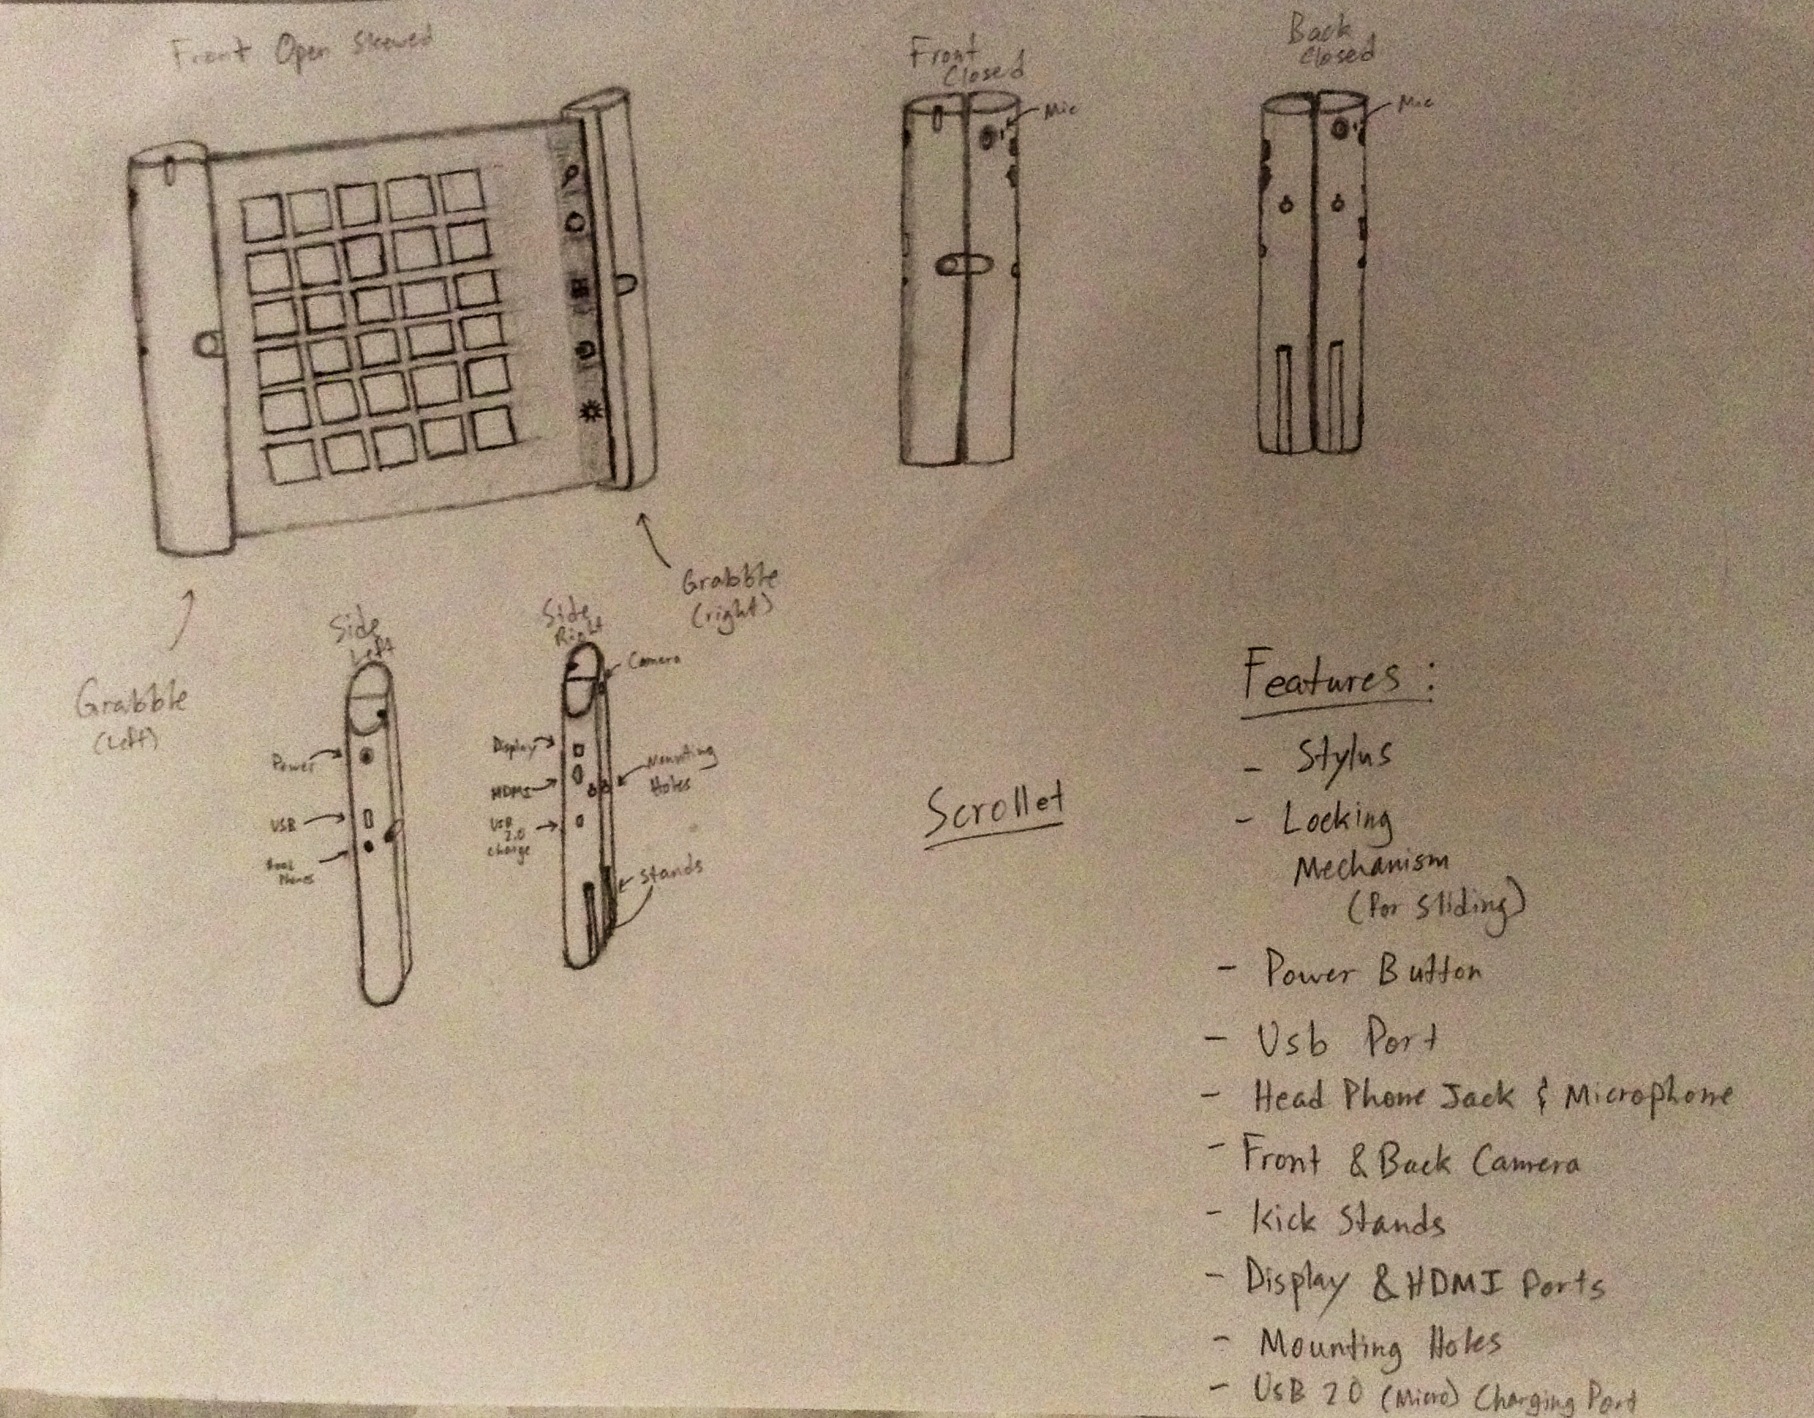 Front Open Skewed
Front
Closed
Mic
Back
Closed
Mic
Grabble
(right)
Grabble
(Left)
Side
Left
Power
USB
Head
Phones
Side
Right
Camera
Display
HDMI
USB
2.0
Charge
Mounting
Holes
Stands
Scrollet
Features:
- Stylus
- Locking
Mechanism
(For Sliding)
- Power Button
- Usb Port
- Head Phone Jack & Microphone
- Front & Back Camera
- Kick Stands
- Display & HDMI Ports
- Mounting Holes
- USB 2.0 (Micro) Charging Port